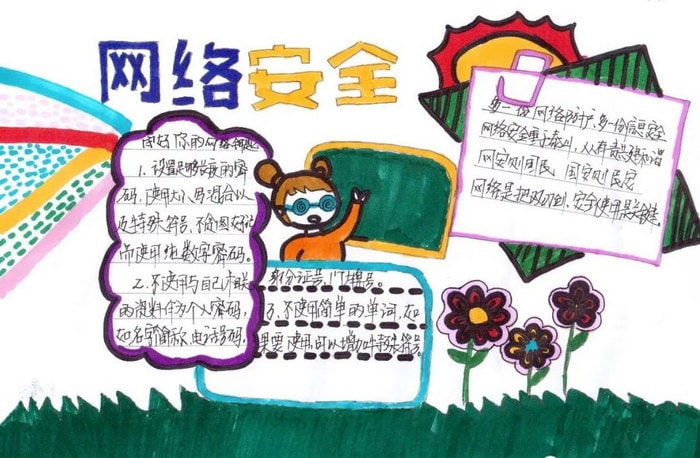 网络安全
用好你的网络钥匙
1.设置足够长度的密
码,使用大小写混合以
及特殊符号,不含图好记
而使用纯数字密码。
2.不使用与自己有联
的资料作为个人密码,
如名字简称,电话号码,
身份证号,门牌号。
3、不使用简单的单词,如
果要使用可以增加特殊符号。
多一份网络防护,多一份信息安全
网络安全重于泰山,人人有责
网安则国民 国安则民安
网络是把双刃剑,安全使用是关键